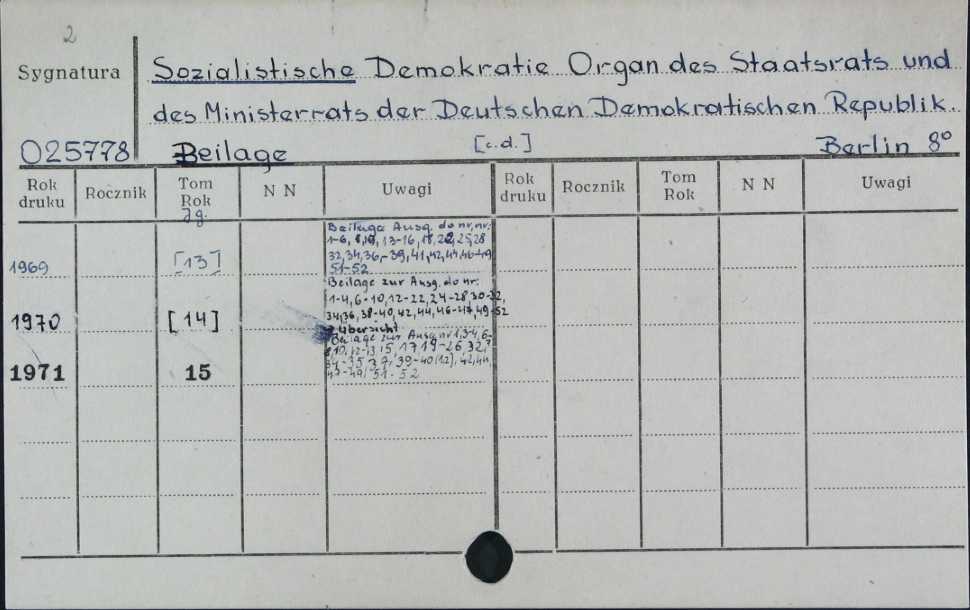 2
Sygnatura
Sozialistische Demokratie Organ des Staatsrats und
des Ministerrats der Deutschen Demokratischen Republik.
025778 Beilage [c.d.] Berlin 8°
Rok druku Rocznik Tom Rok N N Uwagi Rok druku Rocznik Tom Rok N N Uwagi
Jg.
Beilage Ausg. do nr, nr:
1-6, 8, 10, 13-16, 18, 25, 28
32, 34, 36-39, 41, 42, 44, 46-49
1969 [13] 51-52
Beilage zur Ausg. do nr:
1-4, 6-10, 12-22, 24-28, 30-32,
34, 36, 38-40, 42, 44, 46-47, 49-52
1970 [14]
Übersicht
Beilage zur Ausg. nr 1, 3-4, 6-
10, 12-13, 15, 17, 19-26, 32,
34-35, 37, 39-40 (12), 42, 44,
1971 15
47-49, 51-52